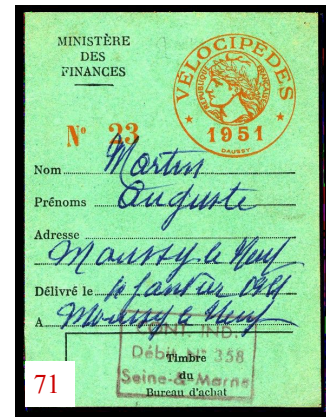 MINISTÈRE
DES
FINANCES
VÉLOCIPÈDES
RÉPUBLIQUE FRANÇAISE
1951
DAUSSY
N° 23
Nom Martin
Prénoms Auguste
Adresse
Moussy le Neuf
Délivré le Janvier 1951
A Moussy le Neuf
CONT. IND.
Débit N° 358
Seine-&-Marne
Timbre
du
Bureau d'achat
71